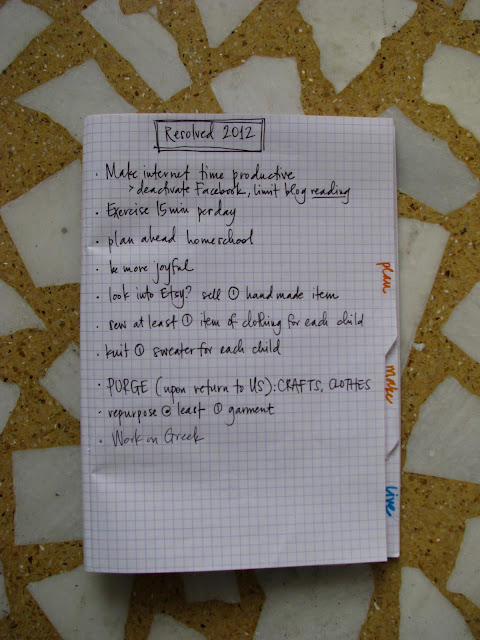 Resolved 2012
· Make internet time productive
> deactivate Facebook, limit blog reading
· Exercise 15 min per day
· plan ahead homeschool
· be more joyful
· look into Etsy? sell ① handmade item
· sew at least ① item of clothing for each child
· knit ① sweater for each child
· PURGE (upon return to US): CRAFTS, CLOTHES
· repurpose @ least ① garment
· Work on Greek
plan
make
live